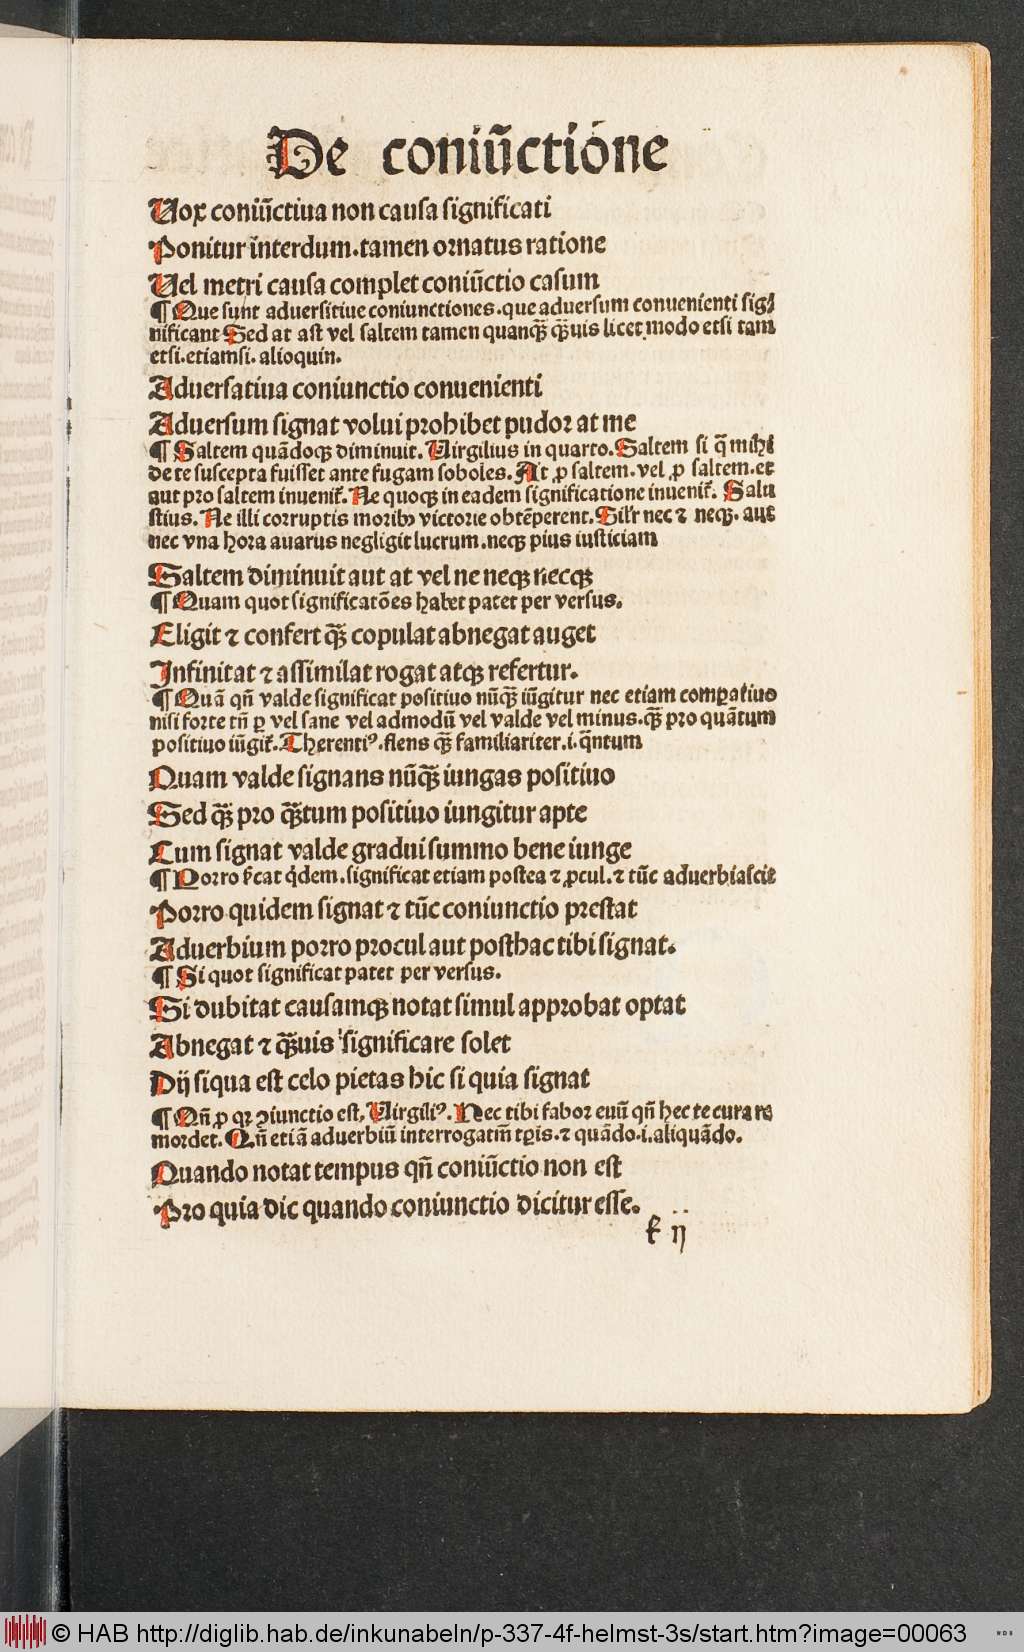 De coniūctione
Uox coniūctiua non causa significati
Ponitur interdum.tamen ornatus ratione
Uel metri causa complet coniūctio casum
¶ Que sunt aduersitiue coniunctiones.que aduersum conuenienti sig⸗
nificant Sed at ast vel saltem tamen quanqꝫ̄ qꝫ̄uis licet modo etsi tam
etsi.etiamsi. alioquin.
Aduersatiua coniunctio conuenienti
Aduersum signat volui prohibet pudor at me
¶ Saltem quādoqꝫ diminuit. Uirgilius in quarto. Saltem si q̄ mihi
de te suscepta fuisset ante fugam soboles. At ꝓ saltem. vel ꝓ saltem.et
aut pro saltem inuenit᷑. Ne quoqꝫ in eadem significatione inuenit᷑. Salu
stius. Ne illi corruptis moribꝫ victorie obtēperent. Sil'r nec ⁊ neqꝫ. aut
nec vna hora auarus negligit lucrum.neqꝫ pius iusticiam
Saltem diminuit aut at vel ne neqꝫ necqꝫ
¶ Quam quot significatōes habet patet per versus.
Eligit ⁊ confert qꝫ̄ copulat abnegat auget
Infinitat ⁊ assimilat rogat atqꝫ refertur.
¶ Quā qn̄ valde significat positiuo nūqꝫ̄ iūgitur nec etiam compatiuo
nisi forte tn̄ ꝑ vel sane vel admodū vel valde vel minus.qꝫ̄ pro quātum
positiuo iūgit᷑. Therentiꝰ.flens qꝫ̄ familiariter.i.q̄ntum
Quam valde signans nūqꝫ̄ iungas positiuo
Sed qꝫ̄ pro qꝫ̄tum positiuo iungitur apte
Cum signat valde gradui summo bene iunge
¶ Porro s̄cat q̇dem.significat etiam postea ⁊ ꝓcul.⁊ tūc aduerbiascit
Porro quidem signat ⁊ tūc coniunctio prestat
Aduerbium porro procul aut posthac tibi signat.
¶ Si quot significat patet per versus.
Si dubitat causamqꝫ notat simul approbat optat
Abnegat ⁊ qꝫ̄uis significare solet
Dij siqua est celo pietas hic si quia signat
¶ Qn̄ ꝓ qꝛ ꝯiunctio est, Uirgiliꝰ. Nec tibi fabor euū qn̄ hec te cura re
mordet. Qn̄ etiā aduerbiū interrogatiū tꝑis.⁊ quādo.i.aliquādo.
Quando notat tempus qn̄ coniūctio non est
Pro quia dic quando coniunctio dicitur esse.
k ij
© HAB http://diglib.hab.de/inkunabeln/p-337-4f-helmst-3s/start.htm?image=00063